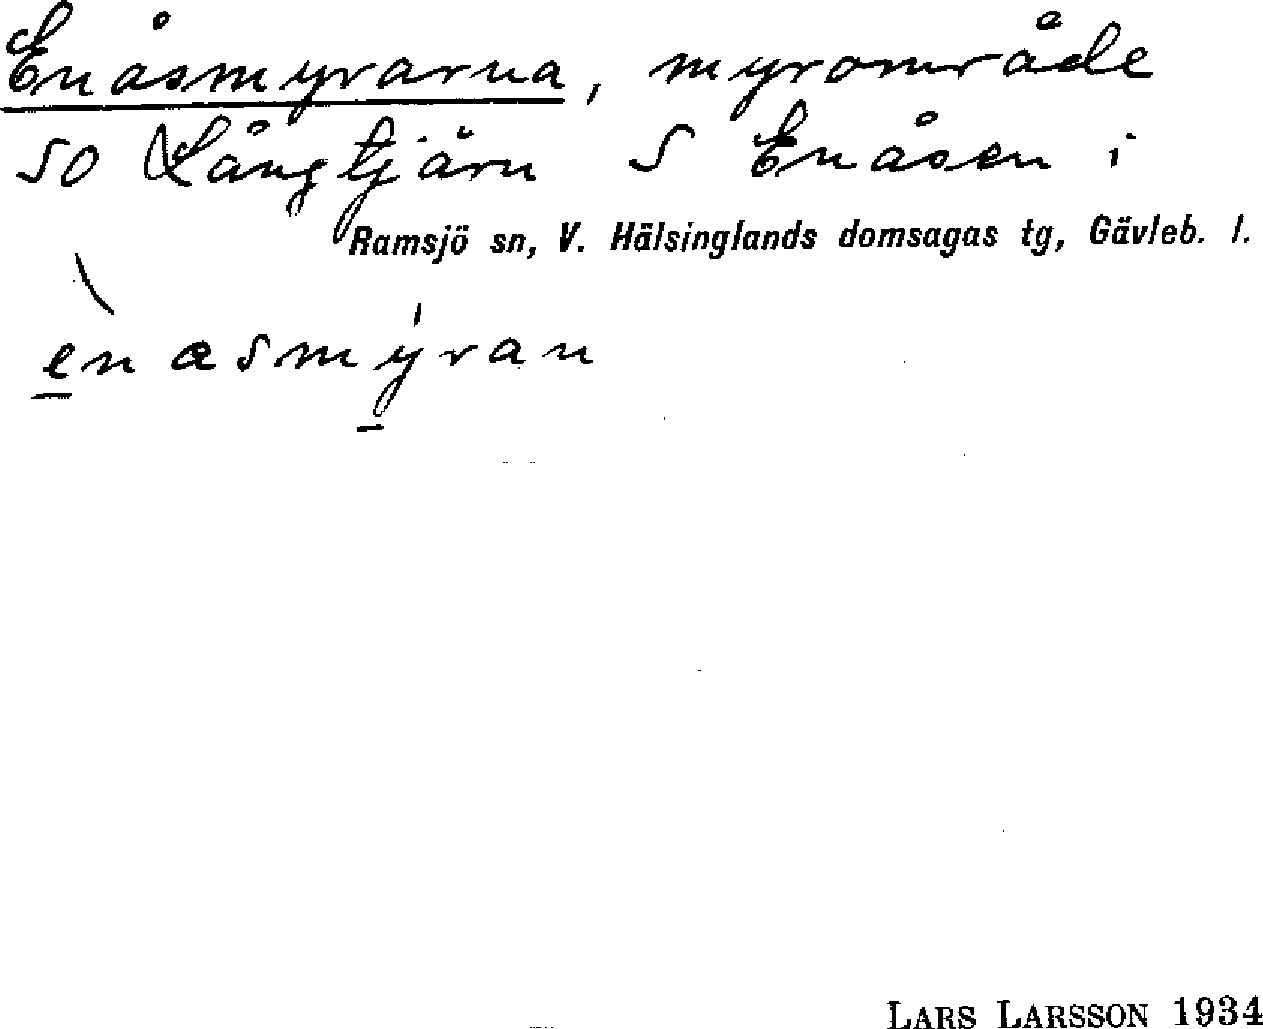 Enåsmyrarna, myrområde
SO Långtjärn S Enåsen i
Ramsjö sn, V. Hälsinglands domsagas tg, Gävleb. l.
èn asmýran
LARS LARSSON 1934